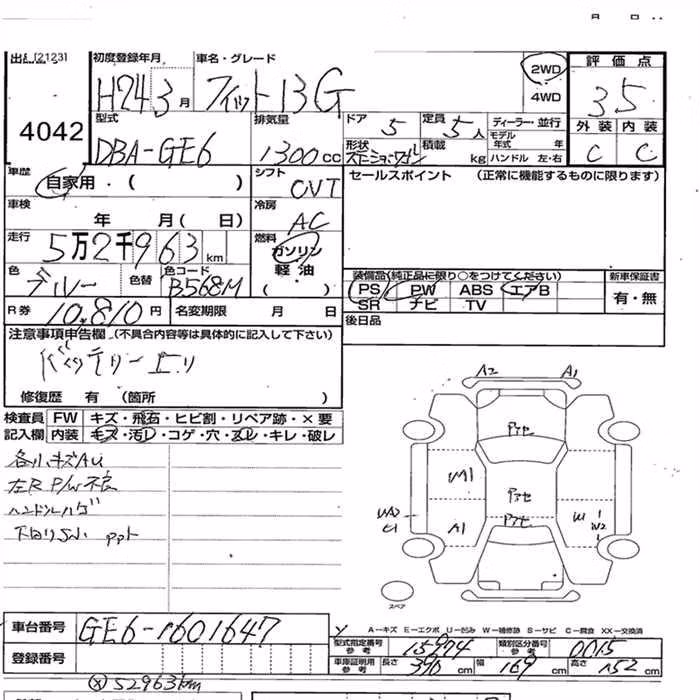 月 日
出品 (2123)
4042
初度登録年月
H24 3 月
車名・グレード
フィット 13G
2WD
4WD
評価点
3.5
型式
DBA-GE6
排気量
1300 cc
ドア
5
定員
5 人
形状
ステーションワゴン
積載
kg
ディーラー・並行
モデル年式 年
ハンドル 左・右
外装 内装
C C
車歴
自家用・( )
シフト
CVT
セールスポイント (正常に機能するものに限ります)
車検
年 月( 日)
冷房
AC
走行
5万2千963 km
燃料
ガソリン
軽油
( )
色
ブルー
色替
色コード
B568M
装備品(純正品に限り○をつけてください)
PS PW ABS エアB
SR ナビ TV
新車保証書
有・無
R券
10,810円
名変期限 月 日
後日品
注意事項申告欄(不具合内容等は具体的に記入して下さい)
修復歴 有 (箇所 )
検査員記入欄
FW キズ・飛石・ヒビ割・リペア跡・×要
内装 キズ・汚レ・コゲ・穴・スレ・キレ・破レ
各小キズAU
左R P/W不良
ハンドルハゲ
A2 A1
アセ
W1
アセ
アセ
A1
W
W2
スペア
車台番号
GE6-1601647
登録番号
A−キズ E−エクボ U−凹み W−補修跡 S−サビ C−腐食 XX−交換済
型式指定番号 参考
15974
類別区分番号 参考
0015
車庫証明用 参考
長さ 390 cm 幅 169 cm 高さ 152 cm
52963km